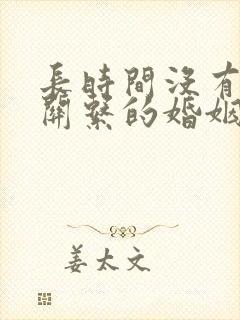 長時間沒有
關繫的婚姻
姜太文